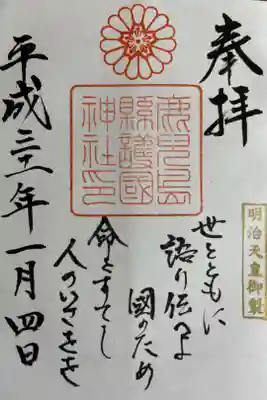 奉拝
明治天皇御製
世とともに
語り伝へよ
國のため
命をすてし
人のいさをを
鹿児島
縣護國
神社印
平成三十一年一月四日